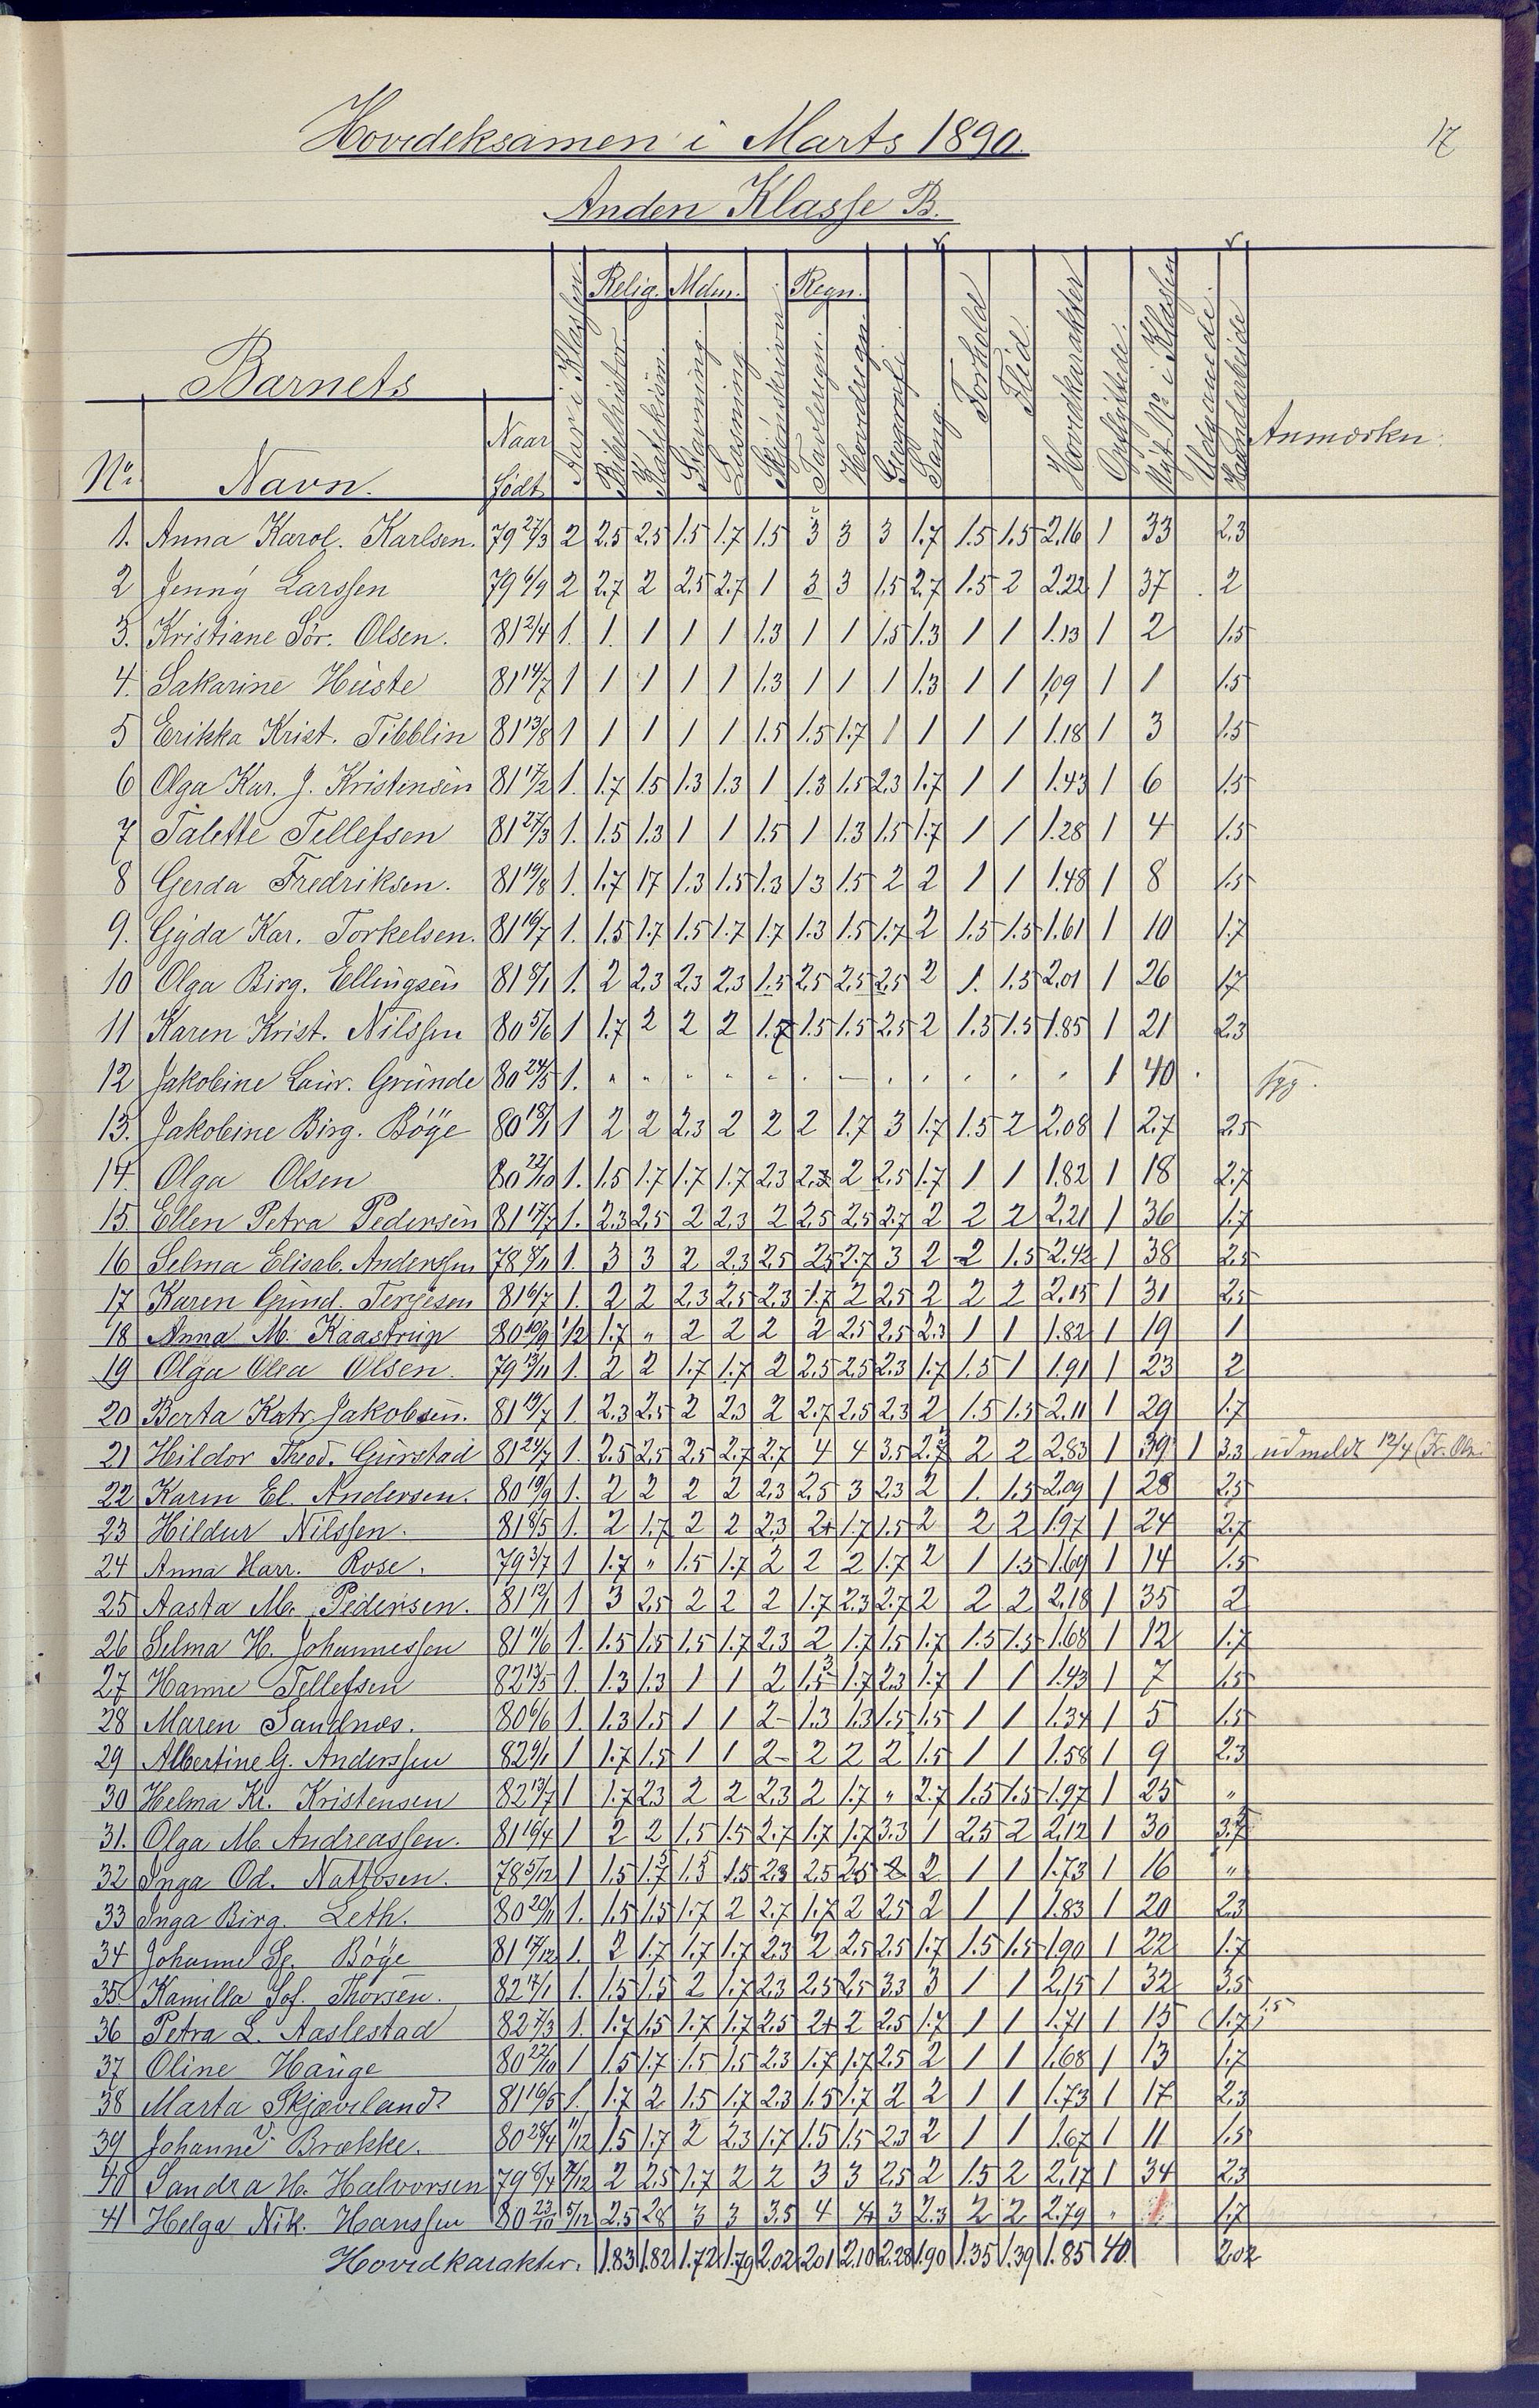 17
Hovedeksamen i Marts 1890.
Anden Klasse B.
Barnets
No. Navn. Naar Født Aar i Klassen Relig. Bibelhistor. Katekism. Mdm. Stavning Læsning Skjønskrivn. Regn. Tavleregn. Hovedregn. Geografi Sang Forhold Flid Hovedkarakter Opflyttede Nyt No i Klassen Udgaaende Haandarbeide Anmærkn.
1. Anna Karol. Karlsen. 79 27/3 2 2.5 2.5 1.5 1.7 1.5 3 3 3 1.7 1.5 1.5 2.16 1 33 2.3
2 Jenny Larssen 79 6/9 2 2.7 2 2.5 2.7 1 3 3 1.5 2.7 1.5 2 2.22 1 37 2
3. Kristiane Sør. Olsen. 81 2/4 1. 1. 1 1 1 1.3 1 1 1.5 1.3 1 1 1.13 1 2 1.5
4. Sakarine Huste 81 14/7 1 1 1 1 1 1.3 1 1 1 1.3 1 1 1,09 1 1 1.5
5 Erikka Krist. Tibblin 81 13/8 1 1 1 1 1 1.5 1.5 1.7 1 1 1 1 1.18 1 3 1.5
6 Olga Kar. J. Kristensen 81 17/2 1. 1.7 1.5 1.3 1.3 1 1.3 1.5 2.3 1.7 1 1 1.43 1 6 1.5
7 Talette Tellefsen 81 27/3 1. 1.5 1.3 1 1 1.5 1 1.3 1.5 1.7 1 1 1.28 1 4 1.5
8 Gerda Fredriksen. 81 19/8 1. 1.7 1.7 1.3 1.5 1.3 1.3 1.5 2 2 1 1 1.48 1 8 1.5
9. Gyda Kar. Torkelsen. 81 16/7 1. 1.5 1.7 1.5 1.7 1.7 1.3 1.5 1.7 2 1.5 1.5 1.61 1 10 1.7
10 Olga Birg. Ellingsen 81 8/1 1. 2 2.3 2.3 2.3 1.5 2.5 2.5 2.5 2 1. 1.5 2.01 1 26 1.7
11 Karen Krist. Nilssen 80 5/6 1 1.7 2 2 2 1.7 1.5 1.5 2.5 2 1.5 1.5 1.85 1 21 2.3
12 Jakobine Laur. Grunde 80 24/5 1. " " " " " " " " " " " " 1 40 syg.
13. Jakobine Birg. Bøye 80 18/1 1 2 2 2.3 2 2 2 1.7 3 1.7 1.5 2 2.08 1 27 2.5
14. Olga Olsen 80 22/10 1. 1.5 1.7 1.7 1.7 2.3 2.3 2 2.5 1.7 1 1 1.82 1 18 2.7
15. Ellen Petra Pedersen 81 17/7 1. 2.3 2.5 2 2.3 2 2.5 2.5 2.7 2 2 2 2.21 1 36 1.7
16 Selma Elisab. Anderssen 78 8/11 1. 3 3 2 2.3 2.5 2.5 2.7 3 2 2 1.5 2.42 1 38 2.5
17 Karen Gund. Terjesen 81 6/7 1. 2 2 2.3 2.5 2.3 1.7 2 2.5 2 2 2 2.15 1 31 2.5
18 Anna M. Kaastrup 80 10/9 1/2 1.7 " 2 2 2 2 2.5 2.5 2.3 1 1 1.82 1 19 1
19 Olga Olea Olsen. 79 13/11 1. 2 2 1.7 1.7 2 2.5 2.5 2.3 1.7 1.5 1 1.91 1 23 2
20 Berta Katr. Jakobsen. 81 19/7 1. 2.3 2.5 2 2.3 2 2.7 2.5 2.3 2 1.5 1.5 2.11 1 29 1.7
21 Hildor Theod. Gurstad 81 24/7 1. 2.5 2.5 2.5 2.7 2.7 4 4 3.5 2.7 2 2 2.83 1 39 1 3.3 udmeldt 12/4
22 Karen El. Andersen. 80 19/9 1. 2 2 2 2 2.3 2.5 3 2.3 2 1. 1.5 2.09 1 28 2.5
23 Hildur Nilssen. 81 8/5 1. 2 1.7 2 2 2.3 2+ 1.7 1.5 2 2 2 1.97 1 24 2.7
24 Anna Harr. Rose. 79 3/7 1 1.7 " 1.5 1.7 2 2 2 1.7 2 1 1.5 1.69 1 14 1.5
25 Aasta M. Pedersen. 81 12/1 1 3 2.5 2 2 2 1.7 2.3 2.7 2 2 2 2.18 1 35 2
26 Selma H. Johannessen 81 11/6 1. 1.5 1.5 1.5 1.7 2.3 2 1.7 1.5 1.7 1.5 1.5 1.68 1 12 1.7
27 Hanne Tellefsen 82 13/5 1. 1.3 1.3 1 1 2 1.5 1.7 2.3 1.7 1 1 1.43 1 7 1.5
28 Maren Sandnæs. 80 6/6 1. 1.3 1.5 1 1 2- 1.3 1.3 1.5 1.5 1 1 1.34 1 5 1.5
29 Albertine G. Anderssen 82 9/1 1 1.7 1.5 1 1 2- 2 2 2 1.5 1 1 1.58 1 9 2.3
30 Helma Kr. Kristensen 82 13/7 1 1.7 2.3 2 2 2.3 2 1.7 " 2.7 1.5 1.5 1.97 1 25 "
31. Olga M. Andreassen. 81 16/4 1 2 2 1.5 1.5 2.7 1.7 1.7 3.3 1 2.5 2 2.12 1 30 3.7
32 Inga Od. Nattosen. 78 5/12 1 1.5 1.7 1.5 1.5 2.3 2.5 2.5 2 2 1 1 1.73 1 16 "
33 Inga Birg. Leth. 80 20/11 1. 1.5 1.5 1.7 2 2.7 1.7 2 2.5 2 1 1 1.83 1 20 2.3
34 Johanne Bøye 81 17/12 1. 2 1.7 1.7 1.7 2.3 2 2.5 2.5 1.7 1.5 1.5 1.90 1 22 1.7
35 Kamilla Sof. Thorsen. 82 7/1 1. 1.5 1.5 2 1.7 2.3 2.5 2.5 3.3 3 1 1 2.15 1 32 3.5
36 Petra L. Aaslestad 82 7/3 1. 1.7 1.5 1.7 1.7 2.5 2+ 2 2.5 1.7 1 1 1.71 1 15 (1.7) 1.5
37 Oline Hauge 80 22/10 1 1.5 1.7 1.5 1.5 2.3 1.7 1.7 2.5 2 1 1 1.68 1 13 1.7
38 Marta Skjæveland 81 16/5 1. 1.7 2 1.5 1.7 2.3 1.5 1.7 2 2 1 1 1.73 1 17 2.3
39 Johanne Brække. 80 28/4 11/12 1.5 1.7 2 2.3 1.7 1.5 1.5 2.3 2 1 1 1.67 1 11 1.5
40 Sandra H. Halvorsen 79 8/4 7/12 2 2.5 1.7 2 2 3 3 2.5 2 1.5 2 2.17 1 34 2.3
41 Helga Nik. Hanssen 80 23/10 5/12 2.5 2.8 3 3 3.5 4 4 3 2.3 2 2 2.79 " 1.7
Hovedkarakter. 1.83 1.82 1.72 1.79 2.02 2.01 2.10 2.28 1.90 1.35 1.39 1.85 40 2.02